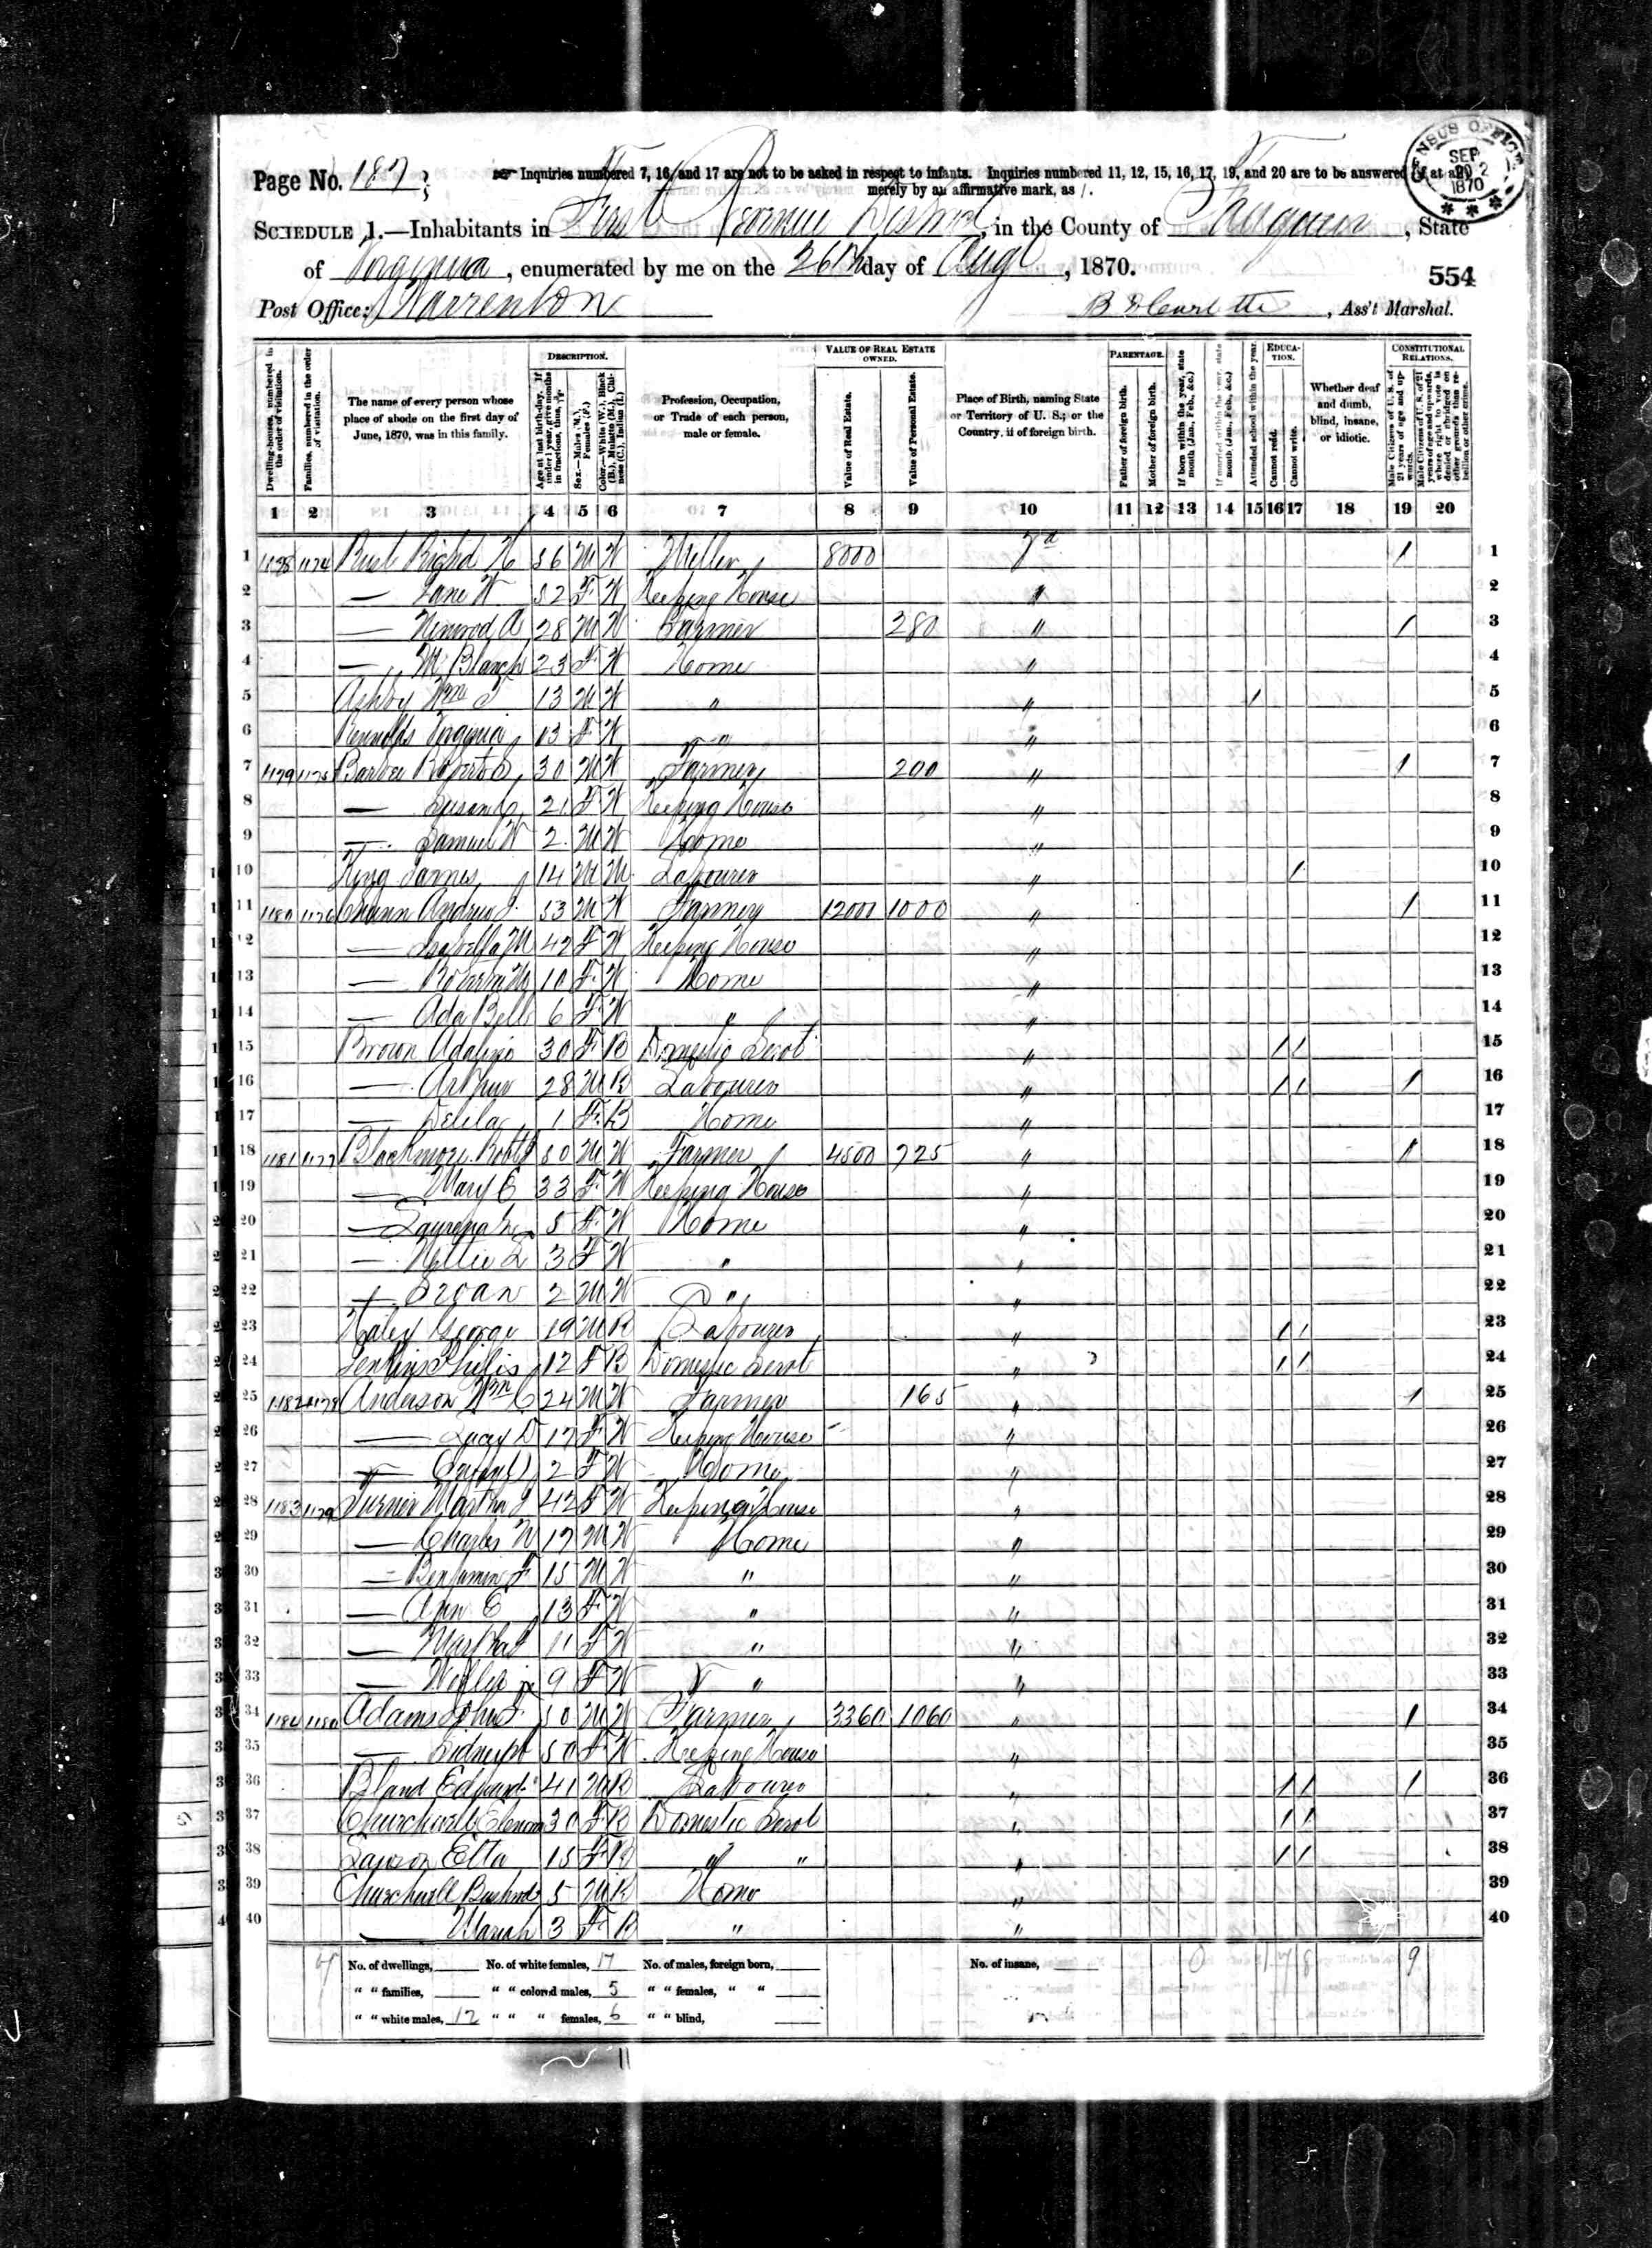 Page No. 187
Inquiries numbered 7, 16, and 17 are not to be asked in respect to infants. Inquiries numbered 11, 12, 15, 16, 17, 19, and 20 are to be answered (if at all)
merely by an affirmative mark, as /.
CENSUS OFFICE SEP 1870
SCHEDULE 1.—Inhabitants in First Revenue District, in the County of Fauquier, State
of Virginia, enumerated by me on the 26th day of Augt, 1870.
554
Post Office: Warrenton
, Ass't Marshal.
Dwelling-houses, numbered in the order of visitation.
Families, numbered in the order of visitation.
The name of every person whose place of abode on the first day of June, 1870, was in this family.
DESCRIPTION.
Age at last birth-day. If under 1 year, give months in fractions, thus,
Sex.—Males (M.), Females (F.)
Color.—White (W.), Black (B.), Mulatto (M.), Chinese (C.), Indian (I.)
Profession, Occupation, or Trade of each person, male or female.
VALUE OF REAL ESTATE OWNED.
Value of Real Estate.
Value of Personal Estate.
Place of Birth, naming State or Territory of U. S.; or the Country, if of foreign birth.
PARENTAGE.
Father of foreign birth.
Mother of foreign birth.
If born within the year, state month (Jan., Feb., &c.)
If married within the year, state month (Jan., Feb., &c.)
Attended school within the year.
EDUCATION.
Cannot read.
Cannot write.
Whether deaf and dumb, blind, insane, or idiotic.
CONSTITUTIONAL RELATIONS.
Male Citizens of U. S. of 21 years of age and upwards.
Male Citizens of U. S. of 21 years of age and upwards, whose right to vote is denied or abridged on other grounds than rebellion or other crime.
1 2 3 4 5 6 7 8 9 10 11 12 13 14 15 16 17 18 19 20
1 1178 1174 Richd H 56 M W Miller 8000 Va / 1
2 — Jane W 52 F W Keeping House " 2
3 — Nimrod A 28 M W Farmer 280 " / 3
4 — M Blanch 23 F W Home " 4
5 Ashby Wm 13 M W " " / 5
6 Reynolds Virginia 13 F W " " 6
7 1179 1175 Barbee Robert S 30 M W Farmer 200 " / 7
8 — Susan C 21 F W Keeping House " 8
9 — Samuel W 2 M W Home " 9
10 King James 14 M M Labourer " / 10
11 1180 1176 Andrew J 53 M W Farmer 12000 1000 " / 11
12 — Isabella M 42 F W Keeping House " 12
13 — 10 F W Home " 13
14 — Ada Bell 6 F W " " 14
15 Brown Adaline 30 F B Domestic Servt " / / 15
16 — Arthur 28 M B Labourer " / / / 16
17 — Delila 1 F B Home " 17
18 1181 1177 Blackmore Robt 50 M W Farmer 4500 725 " / 18
19 — Mary E 33 F W Keeping House " 19
20 — 5 F W Home " 20
21 — Nellie L 3 F W " " 21
22 — 2 M W " " 22
23 Haley George 19 M B Labourer " / / 23
24 Jenkins Philis 12 F B Domestic Servt " / / 24
25 1182 1178 Anderson Wm C 24 M W Farmer 165 " / 25
26 — Lucy D 17 F W Keeping House " 26
27 — 2 F W Home " 27
28 1183 1179 Turner Martha J 42 F W Keeping House " 28
29 — Charles W 17 M W Home " 29
30 — Benjamin F 15 M W " " 30
31 — Ann E 13 F W " " 31
32 — Martha 11 F W " " 32
33 — 9 F W " " 33
34 1184 1180 Adams John F 50 M W Farmer 3360 1060 " / 34
35 — 50 F W Keeping House " 35
36 Bland Edward 41 M B Labourer " / / / 36
37 Churchwell 30 F B Domestic Servt " / / 37
38 Etta 15 F B " " " / / 38
39 Churchwell Bushrod 5 M B Home " 39
40 — Mariah 3 F B " " 40
No. of dwellings, No. of white females, 17 No. of males, foreign born, No. of insane,
" " families, " " colored males, 5 " " females, " "
" " white males, 12 " " " females, 6 " " blind,
0 1 7 8 9
11